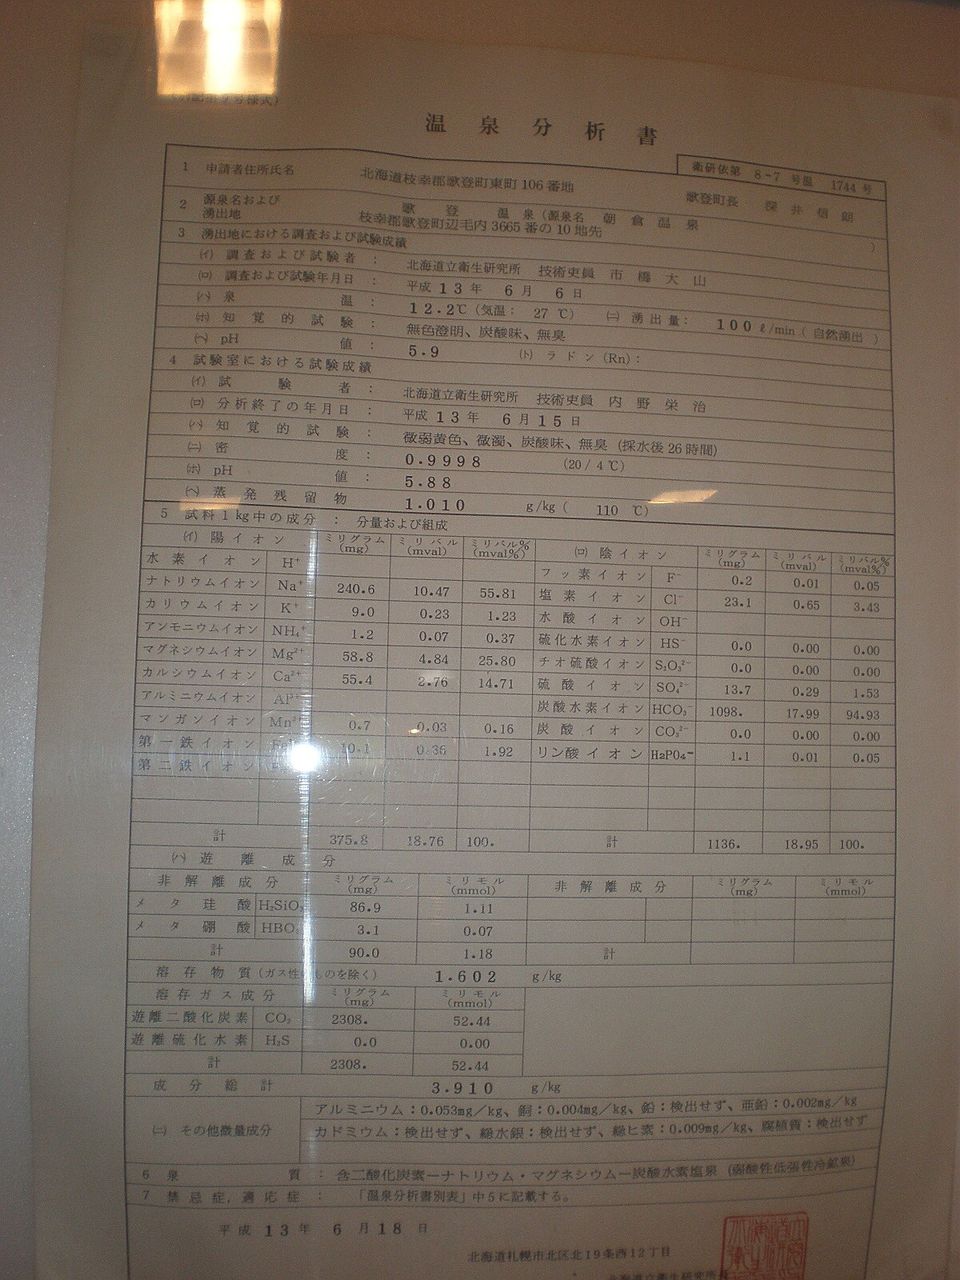 温泉分析書
衛研依第 8-7 号温 1744 号
1 申請者住所氏名 北海道枝幸郡歌登町東町106番地 歌登町長 深井信朗
2 源泉名および湧出地 歌登温泉(源泉名 朝倉温泉 )
枝幸郡歌登町辺毛内3665番の10地先
3 湧出地における調査および試験成績
(イ) 調査および試験者 : 北海道立衛生研究所 技術吏員 市橋大山
(ロ) 調査および試験年月日 : 平成 13 年 6 月 6 日
(ハ) 泉温 : 12.2℃ (気温: 27 ℃) (ニ) 湧出量: 100 ℓ/min (自然湧出)
(ホ) 知覚的試験 : 無色澄明、炭酸味、無臭
(ヘ) pH値 : 5.9 (ト) ラドン(Rn):
4 試験室における試験成績
(イ) 試験者 : 北海道立衛生研究所 技術吏員 内野栄治
(ロ) 分析終了の年月日 : 平成 13 年 6 月 15 日
(ハ) 知覚的試験 : 微弱黄色、微濁、炭酸味、無臭 (採水後26時間)
(ニ) 密度 : 0.9998 (20/4℃)
(ホ) pH値 : 5.88
(ヘ) 蒸発残留物 1.010 g/kg ( 110 ℃)
5 試料1kg中の成分 : 分量および組成
(イ) 陽イオン ミリグラム(mg) ミリバル(mval) ミリバル%(mval%) (ロ) 陰イオン ミリグラム(mg) ミリバル(mval) ミリバル%(mval%)
水素イオン H⁺ フッ素イオン F⁻ 0.2 0.01 0.05
ナトリウムイオン Na⁺ 240.6 10.47 55.81 塩素イオン Cl⁻ 23.1 0.65 3.43
カリウムイオン K⁺ 9.0 0.23 1.23 水酸イオン OH⁻
アンモニウムイオン NH₄⁺ 1.2 0.07 0.37 硫化水素イオン HS⁻ 0.0 0.00 0.00
マグネシウムイオン Mg²⁺ 58.8 4.84 25.80 チオ硫酸イオン S₂O₃²⁻ 0.0 0.00 0.00
カルシウムイオン Ca²⁺ 55.4 2.76 14.71 硫酸イオン SO₄²⁻ 13.7 0.29 1.53
アルミニウムイオン Al³⁺ 炭酸水素イオン HCO₃⁻ 1098. 17.99 94.93
マンガンイオン Mn²⁺ 0.7 0.03 0.16 炭酸イオン CO₃²⁻ 0.0 0.00 0.00
第一鉄イオン 10.1 0.36 1.92 リン酸イオン H₂PO₄⁻ 1.1 0.01 0.05
第二鉄イオン
計 375.8 18.76 100. 計 1136. 18.95 100.
(ハ) 遊離成分
非解離成分 ミリグラム(mg) ミリモル(mmol) 非解離成分 ミリグラム(mg) ミリモル(mmol)
メタ珪酸 H₂SiO₃ 86.9 1.11
メタ硼酸 HBO₂ 3.1 0.07
計 90.0 1.18 計
溶存物質(ガス性のものを除く) 1.602 g/kg
溶存ガス成分 ミリグラム(mg) ミリモル(mmol)
遊離二酸化炭素 CO₂ 2308. 52.44
遊離硫化水素 H₂S 0.0 0.00
計 2308. 52.44
成分総計 3.910 g/kg
(ニ) その他微量成分 アルミニウム:0.053mg/kg、銅:0.004mg/kg、鉛:検出せず、亜鉛:0.002mg/kg
カドミウム:検出せず、総水銀:検出せず、総ヒ素:0.009mg/kg、腐植質:検出せず
6 泉質 : 含二酸化炭素ーナトリウム・マグネシウムー炭酸水素塩泉 (弱酸性低張性冷鉱泉)
7 禁忌症,適応症 : 「温泉分析書別表」中5に記載する。
平成 13 年 6 月 18 日
北海道札幌市北区北19条西12丁目
北海道立衛生研究所